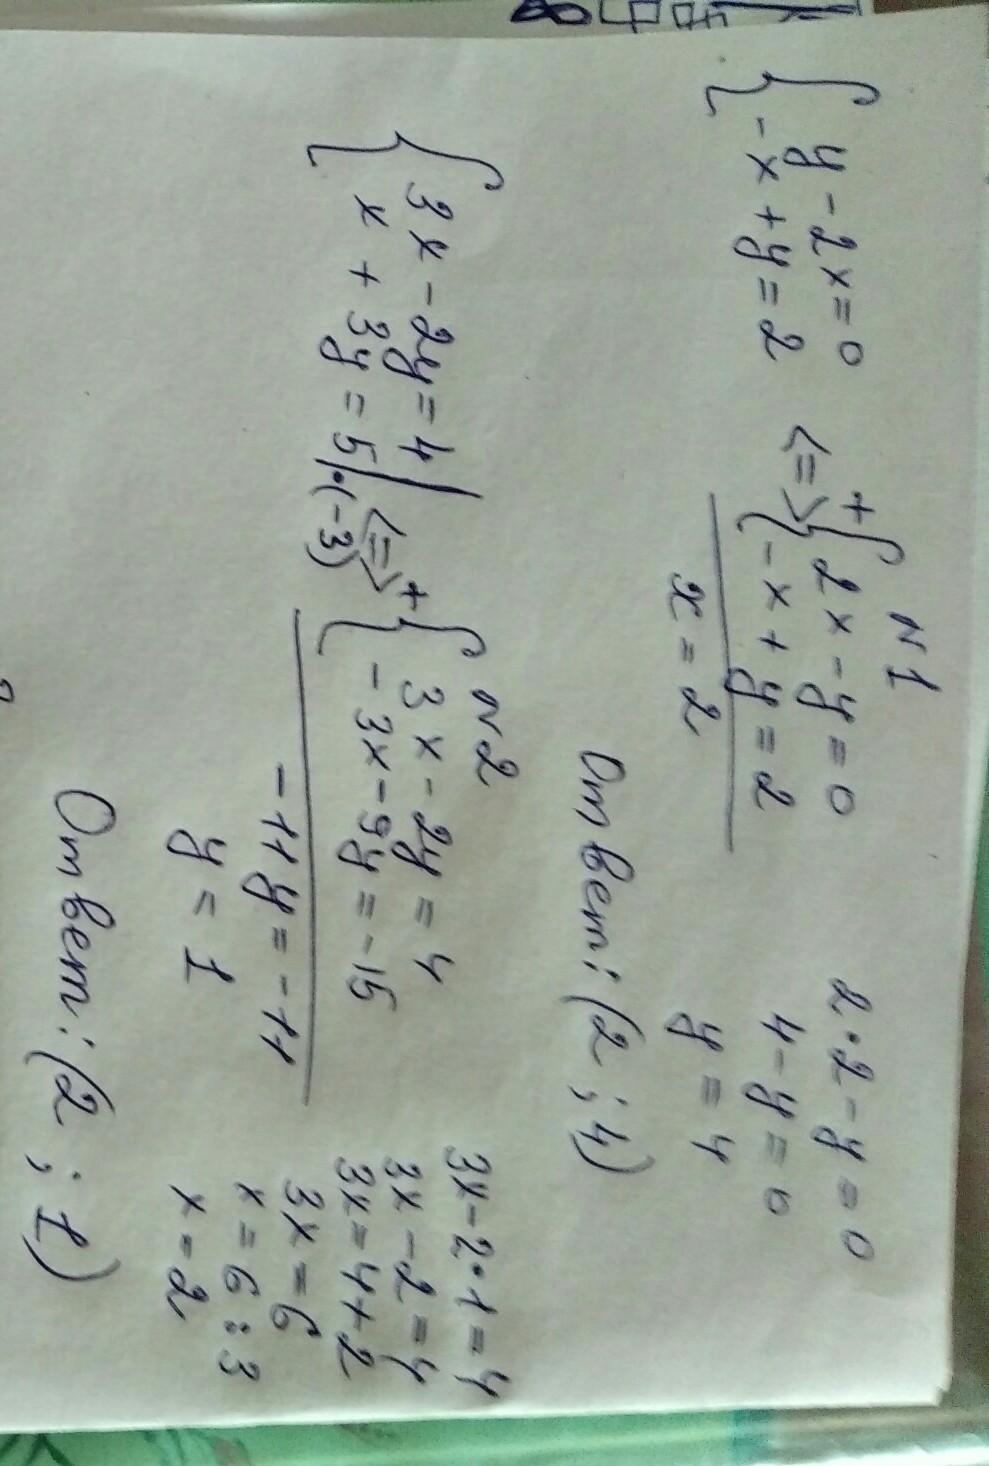 N1
{ y - 2x = 0
{ -x + y = 2 <=> + { 2x - y = 0
{ -x + y = 2
x = 2
2·2 - y = 0
4 - y = 0
y = 4
Ответ: (2 ; 4)
N2
{ 3x - 2y = 4 |
{ x + 3y = 5 |·(-3) <=> + { 3x - 2y = 4
{ -3x - 9y = -15
-11y = -11
y = 1
3x - 2·1 = 4
3x - 2 = 4
3x = 4 + 2
3x = 6
x = 6 : 3
x = 2
Ответ: (2 ; 1)